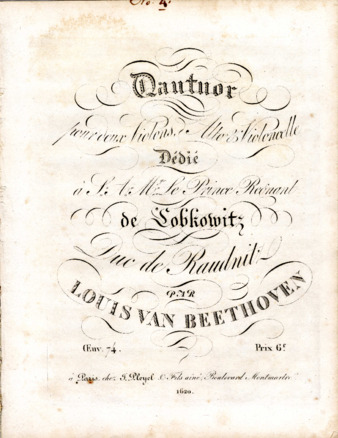 No. 4.
Quatuor
pour deux Violons, Alto & Violoncelle
Dédié
à S. A. Mgr. Le Prince Régnant
de Lobkowitz
Duc de Raudnitz
PAR
LOUIS VAN BEETHOVEN
Œuv. 74. Prix 6f.
à Paris, chez I. Pleyel & Fils ainé, Boulevard Montmartre
1620.